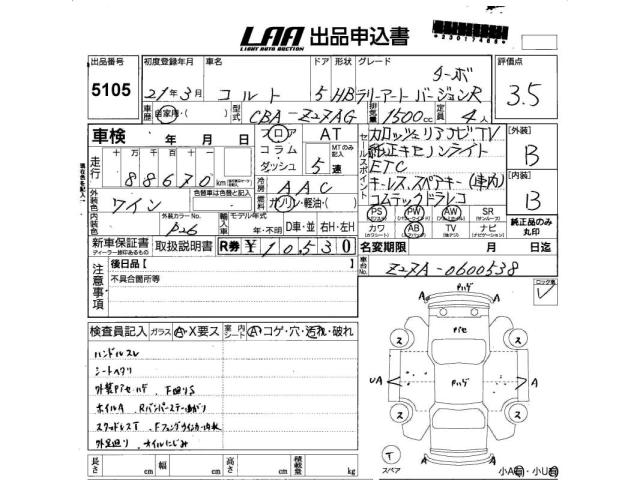 LAA 出品申込書
LIGHT AUTO AUCTION
*23017486*
出品番号 初度登録年月 車名 ドア 形状 グレード 評価点
5105 21年3月 コルト 5 HB ターボ ラリーアート バージョンR 3.5
車歴 自家用・( ) 型式 CBA-Z27AG 排気量 1500cc 定員 4人
車検 年 月 日
フロア コラム ダッシュ
AT MTのみ記入 5速
セールスポイント
カロッツェリアナビ,TV
純正キセノンライト
ETC
キーレス,スペアキー(車内)
コムテックドラレコ
[外装] B
[内装] B
走行 十万 万 千 百 十 一
88670 km
現在色を記入↓
外装色 ワイン
色替車は色替と記入
冷房 AAC
燃料 ガソリン・軽油・( )
内装色
外装カラーNo. P26
輸入車 モデル年式 年・不明 D車・並 右H・左H
PS (パワステ) PW (パワーウインドウ) AW SR (サンルーフ) 純正品のみ丸印
カワ (カワシート) AB (エアバッグ) TV (地デジ) ナビ (ナビゲーション)
新車保証書 ディーラー印のあるもの 取扱説明書 R券 ¥10,530
名変期限 月 日迄
車台No. Z27A-0600538
注意事項
後日品[ ]
不具合箇所等
ロック有 ✓
検査員記入 ガラス A・X要ス 室内 シート A コゲ・穴・汚れ・破れ
ハンドルスレ
シートヘタリ
外装Pアセ・ハゲ、F回りS
ホイルA
スタッドレスT
外足廻り、オイルにじみ
長さ cm 幅 cm 高さ cm 積載量 kg
A Pハゲ A
Pアセ
ス ス
UA Pハゲ A
ス ス
A A
T スペア
小A有・小U有